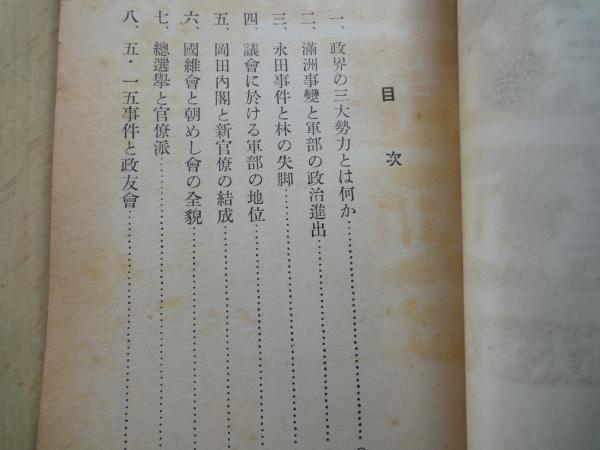 目次
一、政界の三大勢力とは何か
二、滿洲事變と軍部の政治進出
三、永田事件と林の失脚
四、議會に於ける軍部の地位
五、岡田內閣と新官僚の結成
六、國維會と朝めし會の全貌
七、總選擧と官僚派
八、五・一五事件と政友會